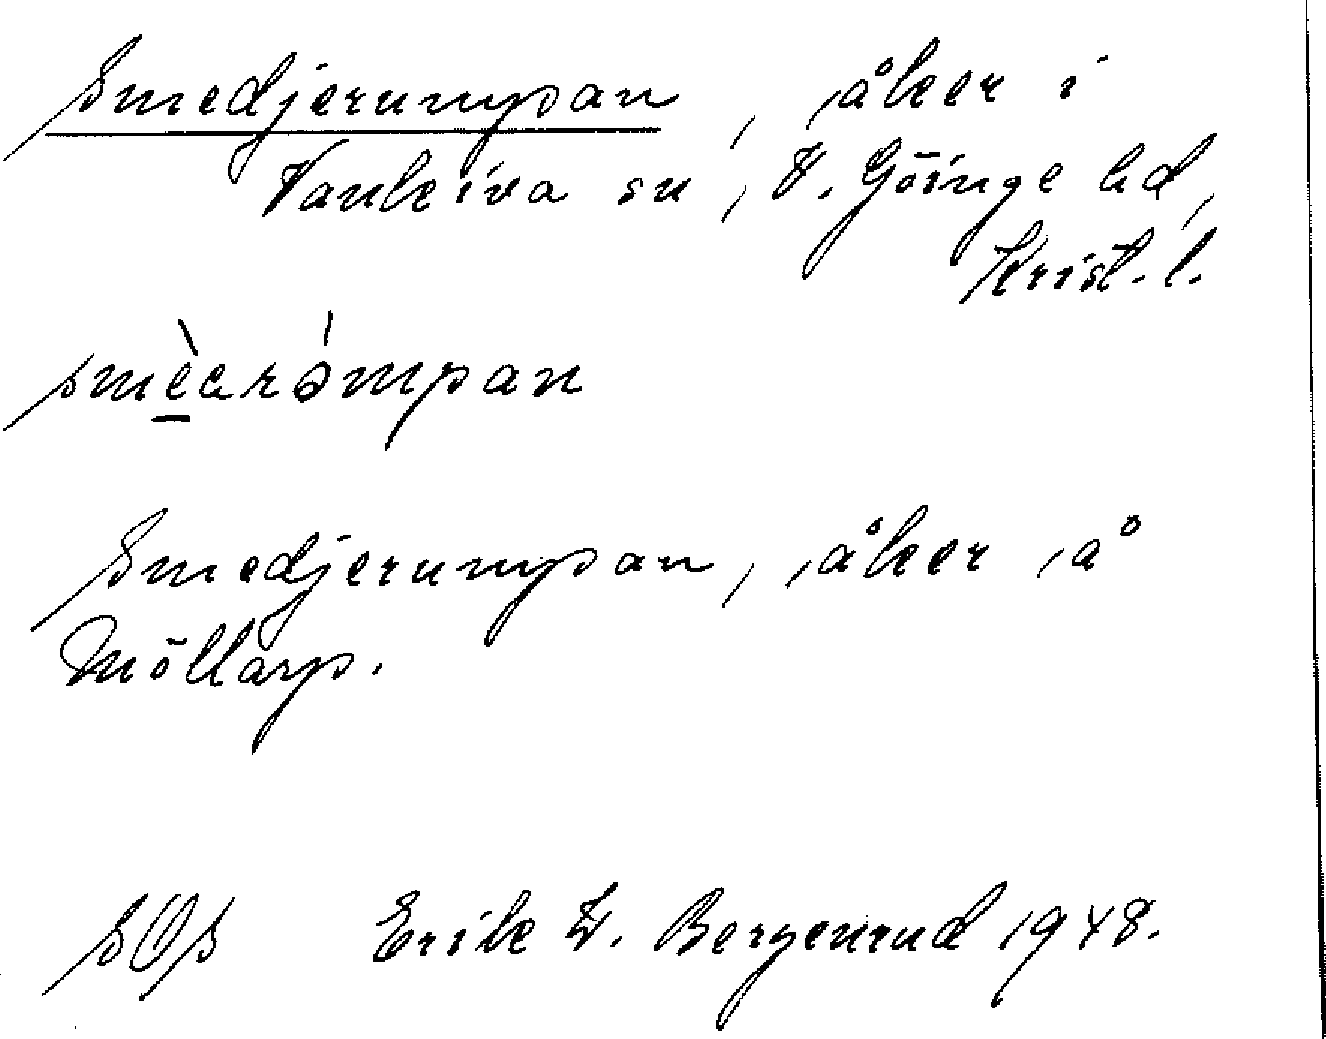 Smedjerumpan, åker i
Vankiva sn, V. Göinge hd,
Krist. l.
smèarómpan
Smedjerumpan, åker å
Möllarp.
SOS Erik W. Bergenrud 1948.